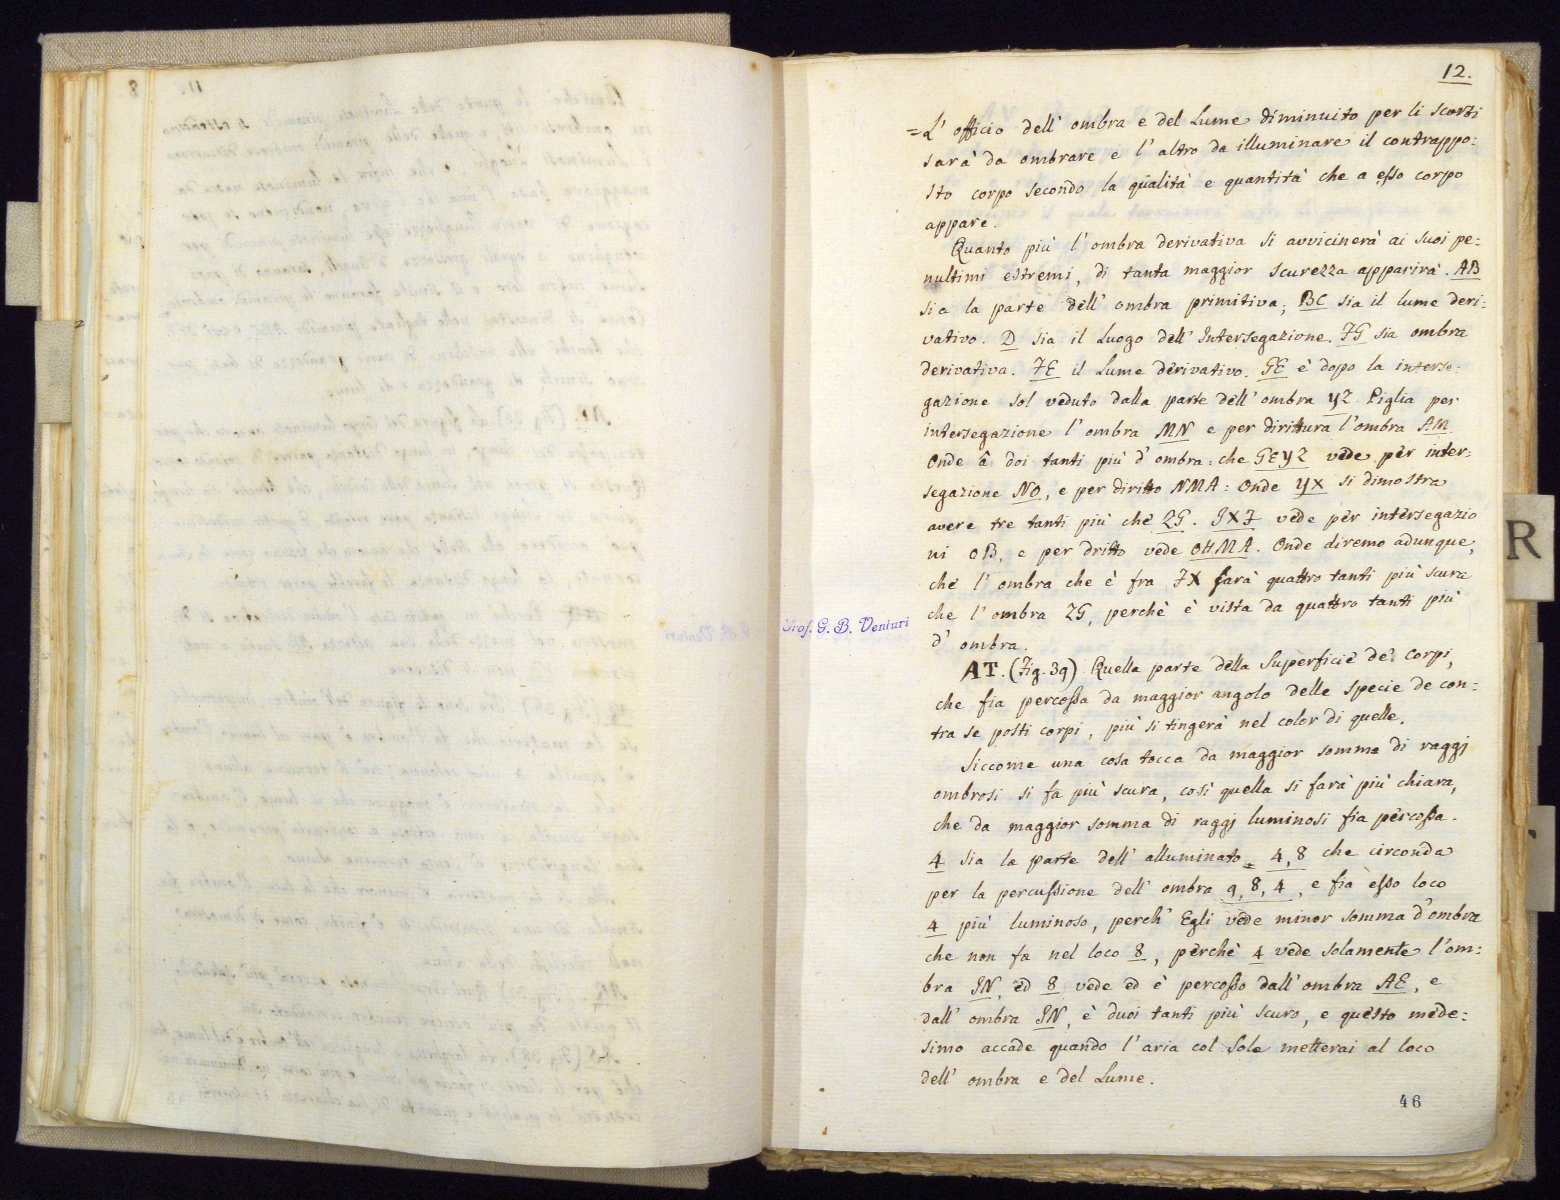 12.
=L' officio dell' ombra e del Lume diminuito per li scorti
sarà da ombrare e l' altro da illuminare il contrappo:
sto corpo secondo la qualità e quantità che a esso corpo
appare.
Quanto più l' ombra derivativa si avvicinerà ai suoi pe:
nultimi estremi, di tanta maggior scurezza apparirà. AB
sia la parte dell' ombra primitiva; BC sia il lume deri:
vativo. D sia il Luogo dell' Intersegazione. FG sia ombra
derivativa. FE il Lume derivativo. GE è dopo la interse:
gazione sol veduto dalla parte dell' ombra YZ Piglia per
intersegazione l' ombra MN e per dirittura l'ombra AM
Onde â doi tanti più d' ombra: che GEYZ vede per inter:
segazione NO, e per diritto NMA: Onde YX si dimostra
avere tre tanti più che ZG. IXF vede per intersegazio
ni OB, e per dritto vede OHMA. Onde diremo adunque,
che l' ombra che è fra FX sarà quattro tanti più scura
che l' ombra ZG, perchè è vista da quattro tanti più
d' ombra.
Prof. G. B. Venturi
AT. (Fig. 39) Quella parte della Superficie de' Corpi,
che fia percossa da maggior angolo delle specie de con:
tra se posti corpi, più si tingerà nel color di quelle.
Siccome una cosa tocca da maggior somma di raggj
ombrosi si fa più scura, così quella si farà più chiara,
che da maggior somma di raggj luminosi fia percossa.
4 sia la parte dell' alluminato = 4,8 che circonda
per la percussione dell' ombra 9, 8, 4, e fia esso loco
4 più luminoso, perch' Egli vede minor somma d'ombra
che non fa nel loco 8, perchè 4 vede solamente l'om:
bra IN, ed 8 vede ed è percosso dall' ombra AE, e
dall' ombra IN, è duoi tanti più scuro, e questo mede:
simo accade quando l'aria col Sole metterai al loco
dell' ombra e del Lume.
46
R